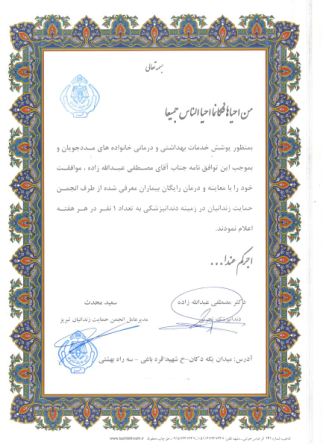 بسمه تعالی
من احیاها فکانما احیا الناس جمیعا
بمنظور پوشش خدمات بهداشتی و درمانی خانواده های مددجویان و
بموجب این توافق نامه جناب آقای مصطفی عبدالله زاده ، موافقت
خود را با معاینه و درمان رایگان بیماران معرفی شده از طرف انجمن
حمایت زندانیان در زمینه دندانپزشکی به تعداد ۱ نفر در هر هفته
اعلام نمودند.
اجرکم عندا...
دکتر مصطفی عبدالله زاده
سعید محدث
دندانپزشک
مدیرعامل انجمن حمایت زندانیان تبریز
آدرس: میدان، یکه دکان-خ شهید قره باغی - سه راه بهشتی